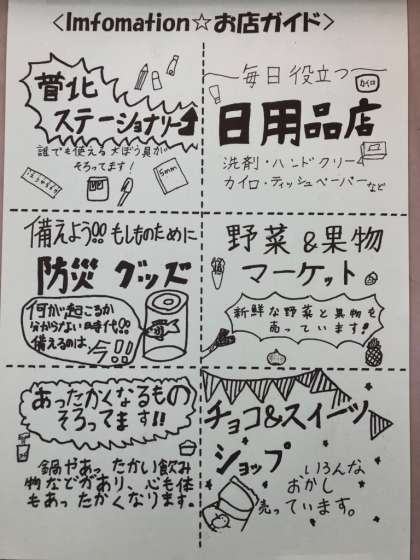 <Imfomation☆お店ガイド>
菅北
ステーショナリー
誰でも使える文ぼう具が
そろってます!
5mm
1 2 3 4 5 6 7 8
〜毎日役立つ〜
カイロ
日用品店
洗剤・ハンドクリーム
カイロ・ティッシュペーパーなど
備えよう!!もしものために
防災グッズ
何が起こるか
分からない時代!!
備えるのは、
今!!
野菜&果物
マーケット
新鮮な野菜と果物を
売っています!
あったかくなるもの
そろってます!!
鍋やあったかい飲み
物などがあり、心も体
もあったかくなります。
チョコ&スイーツ
ショップ
いろんな
おかし
売っています。